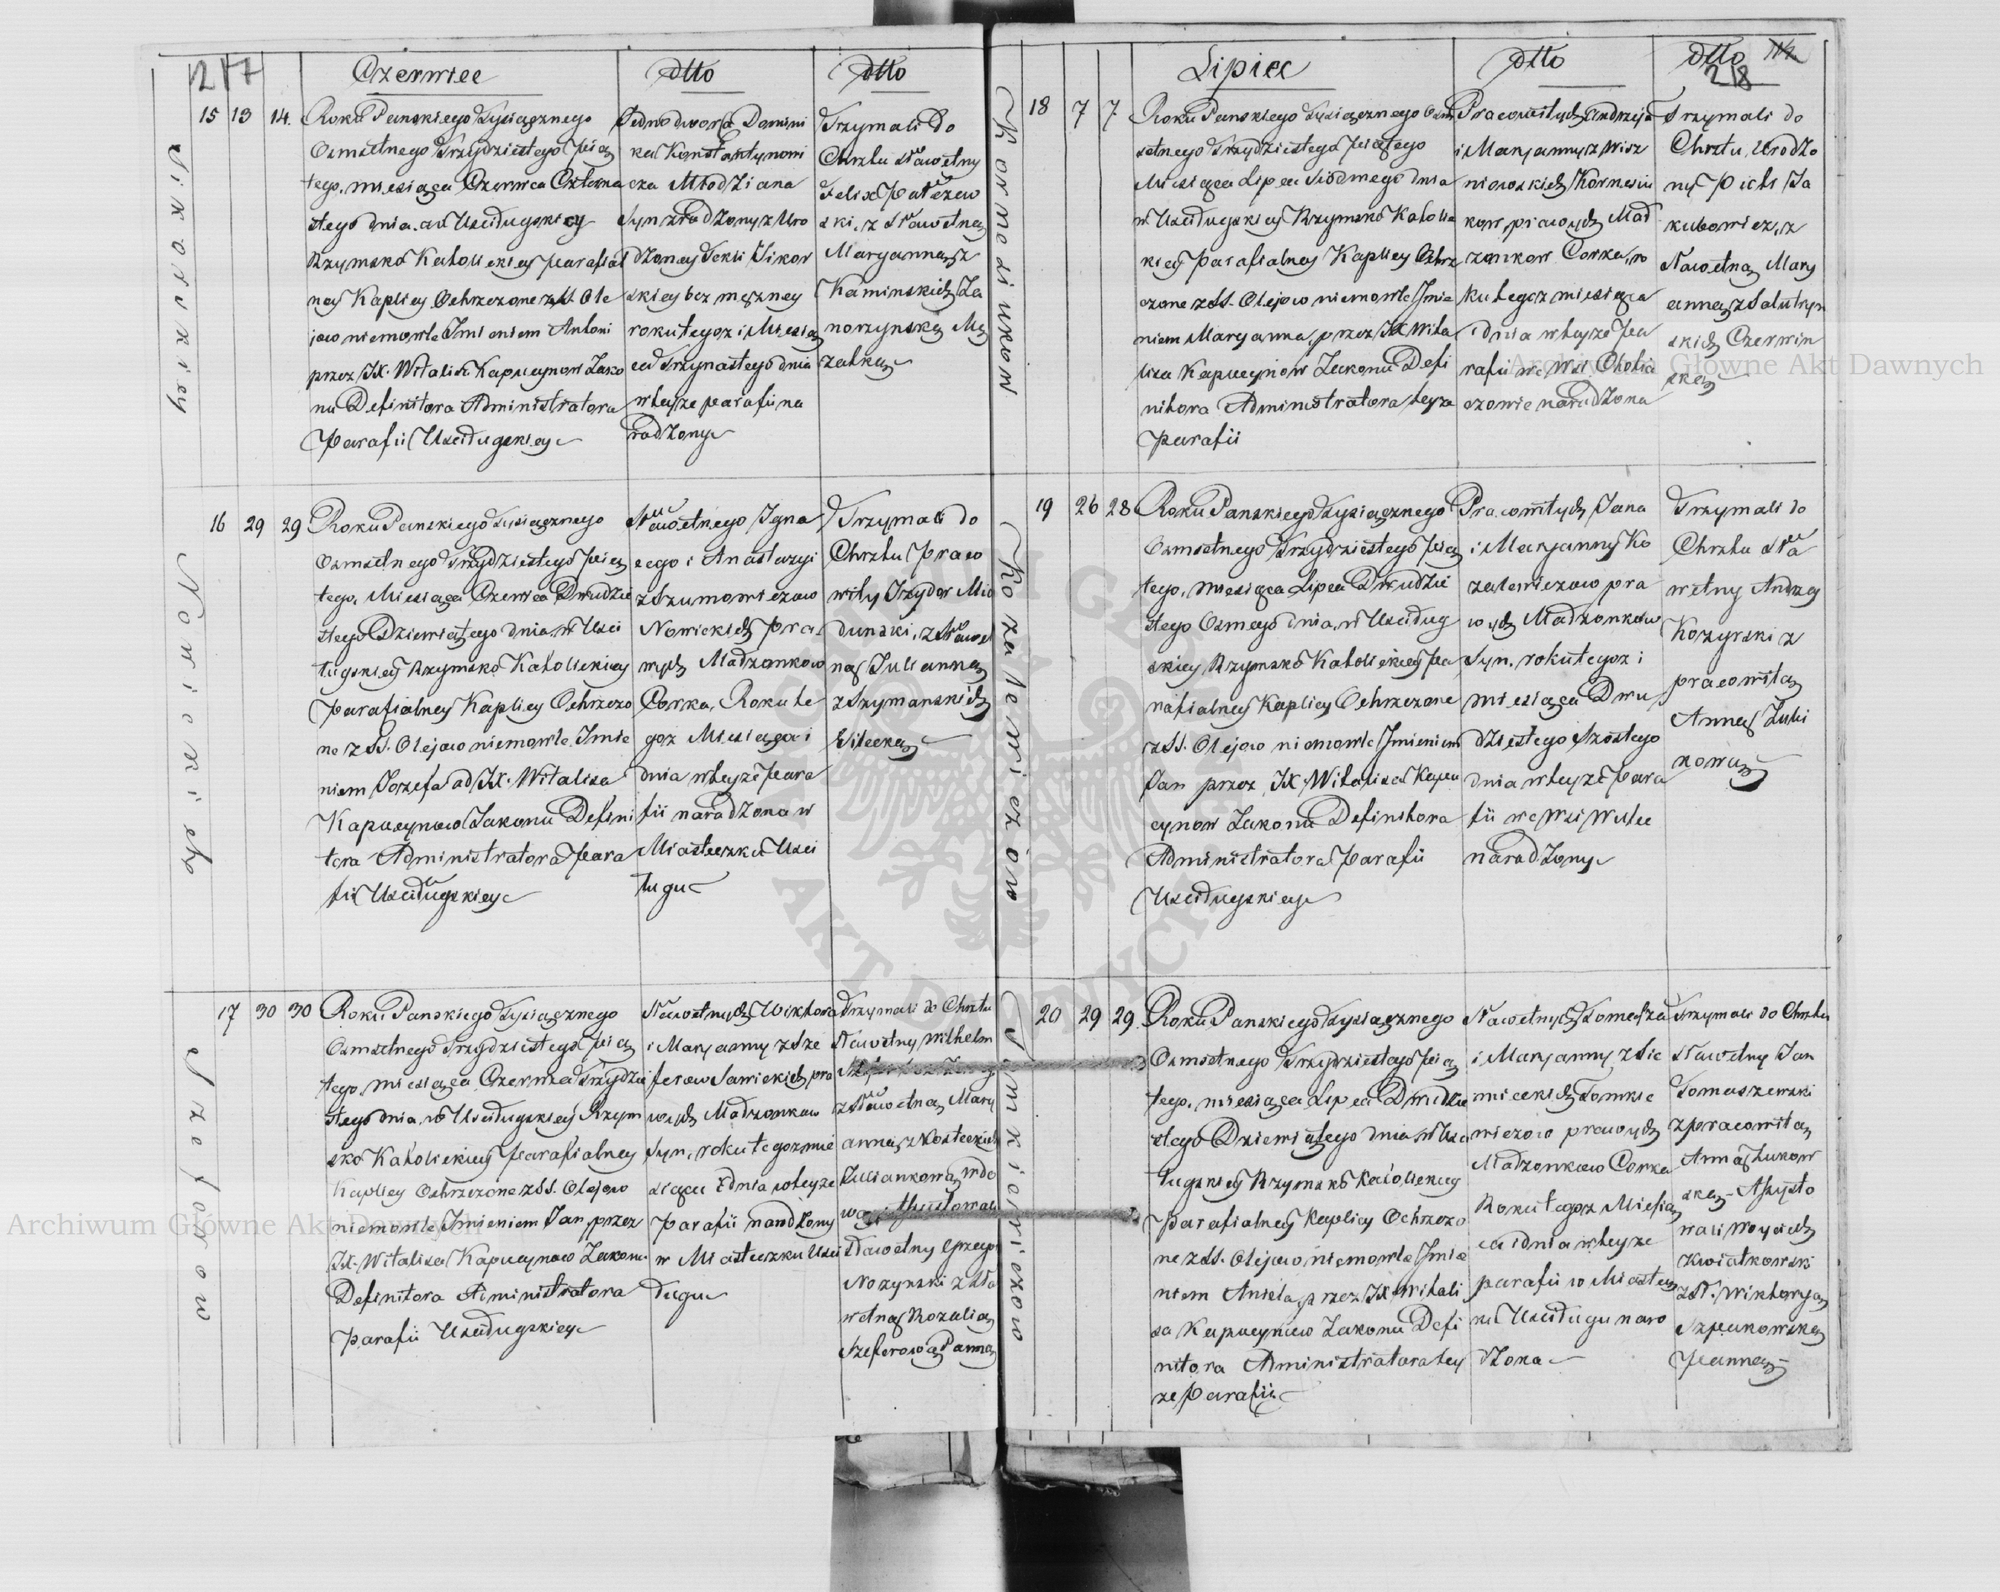 217
Czerwiec
dtto
dtto
Sikorskiey
15 13 14.
Roku Panskiego Tysiącznego
Osmsetnego Trzydziestego Pią
tego, miesiąca Czerwca Czterna
stego dnia, w Usciługskiey
Rzymsko Katolickiey parafial
ney Kaplicy Ochrzczone z SS. Ole
jow niemowle Imieniem Antoni
przez JX. Witalisa Kapucynow Zako
nu Definitora Administratora
Parafii Usciługskiey
Jednodworca Domini
ka Konstantynowi
cza Młodziana
Syn zrodzony z Uro
dzoney Tekli Sikor
skiey bez mężney
roku tegoż i Miesią
ca Trzynastego dnia
w teyże parafii na
rodzony
Trzymali do
Chrztu Sławetny
Felix
ski, z Sławetną
Maryanną z
Kaminskich Za
norzynską Mę
zatką
Nowickich
16 29 29
Roku Panskiego Tysiącznego
Osmsetnego Trzydziestego Pią
tego, Miesiąca Czerwca Dwudzie
stego Dziewiątego dnia, w Usci
ługskiey Rzymsko Katolickiey
Parafialney Kaplicy Ochrzczo
ne z SS. Olejow niemowle Imie
niem Jozefa od JX. Witalisa
Kapucynow Zakonu Defini
tora Administratora Para
fii Usciługskiey
Sławetnego Igna
cego i Anastazyi
z Szumowiczow
Nowickich pra
wych Madzonkow
Corka, Roku te
goz Miesiąca i
dnia w teyże Para
fii narodzona w
Miasteczku Usci
ługu
Trzymali do
Chrztu Praco
wity Izydor
z Sławet
ną Julianną
z Szymanskich
Szeferow
17 30 30
Roku Panskiego Tysiącznego
Osmsetnego Trzydziestego Pią
tego, miesiąca Czerwca Trzydzie
stego dnia, w Usciługskiey Rzym
sko Katolickiey Parafialney
Kaplicy Ochrzczone z SS. Olejow
niemowle Imieniem Jan, przez
JX. Witalisa Kapucynow Zakonu
Definitora Administratora
Parafii Usciługskiey
Sławetnych Wiktora
i Maryanny z Sze
ferow Sawickich, pra
wych Madzonkow
Syn, roku tegoz mie
siąca i dnia w teyże
Parafii narodzony
w Miasteczku Usci
ługu
Trzymali do Chrztu
Sławetny Wilhelm
z Sławetną Mary
anną z
Assystowali
Sławetny Grzegorz
Nozynski z Sła
wetną Rozalią
Szeferową Panną
218
Lipiec
dtto
dtto
Kornesiukow
18 7 7
Roku Panskiego Tysiącznego Osm
setnego Trzydziestego Piątego
Miesiąca Lipca Siodmego dnia
w Usciługskiey Rzymsko Katolic
kiey Parafialney Kaplicy Ochrz
czone z SS. Olejow niemowle Imie
niem Maryanna, przez JX. Wita
lisa Kapucynow Zakonu Defi
nitora Administratora teyże
Parafii
Pracowitych Andrzeja
i Maryanny z Wisz
niowskich Kornesiu
kow, prawych Mad
zonkow Corka, ro
ku tegoz miesiąca
i dnia w teyże Pa
rafii we Wsi
narodzona
Trzymali do
Chrztu, Urodzo
ny Ja
kubowicz, z
Sławetną Mary
anną z
skich Czerwin
ską
Kozakiewiczów
19 26 28
Roku Panskiego Tysiącznego
Osmsetnego Trzydziestego Pią
tego, Miesiąca Lipca Dwudzie
stego Osmego dnia, w Usciług
skiey Rzymsko Katolickiey Pa
rafialney Kaplicy Ochrzczone
z SS. Olejow niemowle Imieniem
Jan przez JX. Witalisa Kapu
cynow Zakonu Definitora
Administratora Parafii
Usciługskiey
Pracowitych Jana
i Maryanny Ko
zalewiczow pra
wych Madzonkow
Syn, roku tegoz i
miesiąca Dwu
dziestego Szostego
dnia w teyże Para
fii we Wsi
narodzony
Trzymali do
Chrztu Sła
wetny Andrzey
Kozyrski z
pracowitą
Anną
Tomkiewiczow
20 29 29
Roku Panskiego Tysiącznego
Osmsetnego Trzydziestego Pią
tego, miesiąca Lipca Dwudzie
stego Dziewiątego dnia, w Usci
ługskiey Rzymsko Katolickiey
Parafialney Kaplicy Ochrzczo
ne z SS. Olejow, niemowle Imie
niem Aniela, przez JX. Witali
sa Kapucynow Zakonu Defi
nitora Administratora tey
że Parafii
Sławetnych Tomasza
i Maryanny z Sie
mieckich Tomkie
wiczow prawych
Madzonkow Corka
Roku tegoz Miesią
ca i dnia w teyże
parafii w Miastecz
ku Usciługu naro
dzona
Trzymali do Chrztu
Sławetny Jan
Tomaszewski
z pracowitą
Anną Łukow
ską Assysto
wali Woyciech
Kwiatkowski
z Sł. Wiktoryą
Szpakowską
Panną
Archiwum Główne Akt Dawnych
Archiwum Główne Akt Dawnych